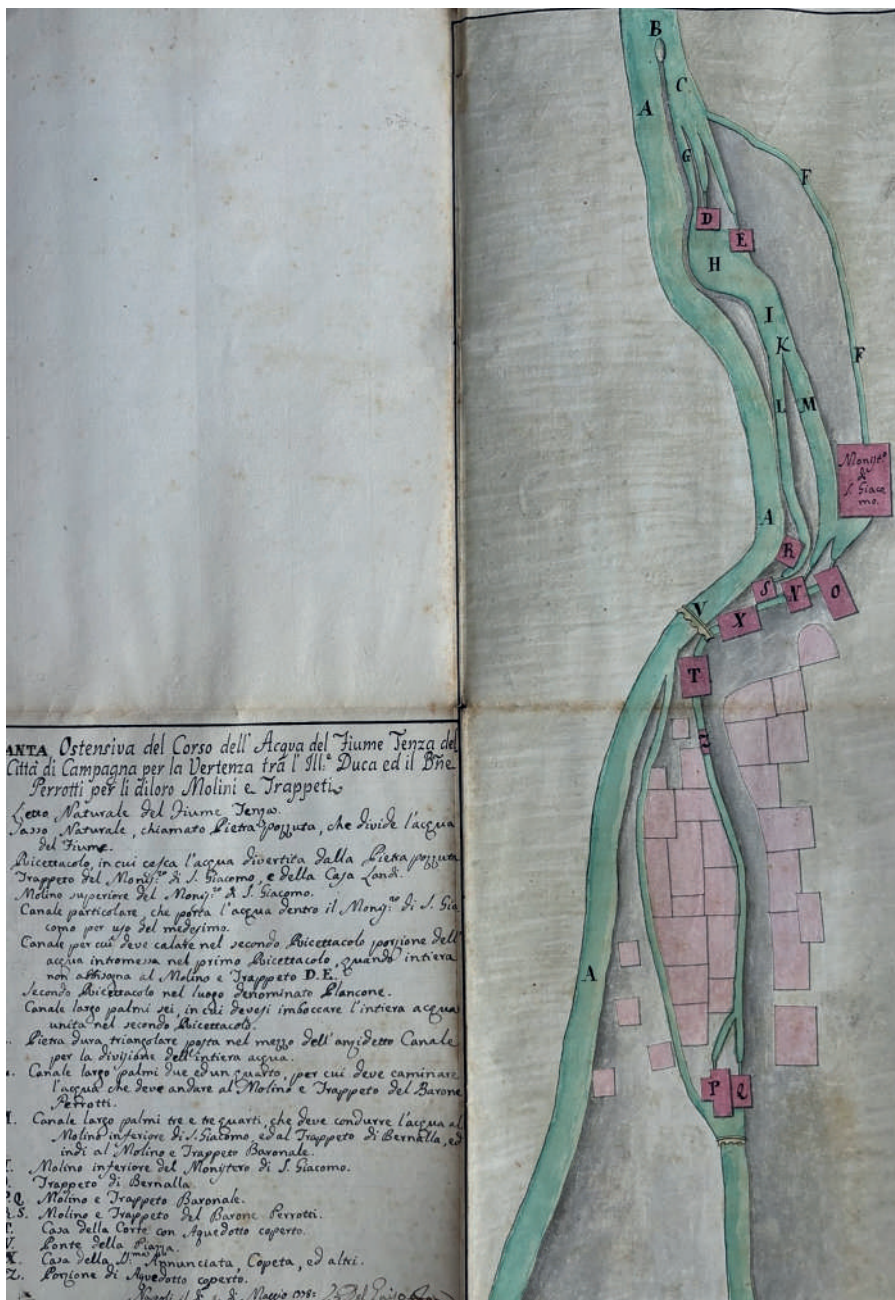 ANTA Ostensiva del Corso dell' Acqua del Fiume Tenza del
Città di Campagna per la Vertenza tra l' Ill.e Duca ed il Bñe
Perrotti per li diloro Molini e Trappeti
Letto Naturale del Fiume Tenza.
Sasso Naturale, chiamato Pietra pozzuta, che divide l'acqua
del Fiume.
Ricettacolo, in cui casca l'acqua divertita dalla Pietra pozzuta
Trappeto del Monist.ro di S. Giacomo, e della Casa Landi.
Molino superiore del Monist.ro di S. Giacomo.
Canale particolare, che porta l'acqua dentro il Monist.ro di S. Gia
como per uso del medesimo.
Canale per cui deve calare nel secondo Ricettacolo porzione dell'
acqua intromessa nel primo Ricettacolo, quando intiera
non abbisogna al Molino e Trappeto D.E.
Secondo Ricettacolo nel luogo denominato Plancone.
Canale largo palmi sei, in cui devesi imboccare l'intiera acqua
unita nel secondo Ricettacolo.
Pietra dura triangolare posta nel mezzo dell' anzidetto Canale
per la divisione dell' intiera acqua.
Canale largo palmi due ed un quarto, per cui deve caminare
l'acqua che deve andare al Molino e Trappeto del Barone
Perrotti.
Canale largo palmi tre e tre quarti, che deve condurre l'acqua al
Molino inferiore di S. Giacomo, ed al Trappeto di Bernalla, ed
indi al Molino e Trappeto Baronale.
Molino inferiore del Monistero di S. Giacomo.
Trappeto di Bernalla
P.Q. Molino e Trappeto Baronale.
R.S. Molino e Trappeto del Barone Perrotti.
T. Casa della Corte con Aquedotto coperto.
V. Ponte della Piazza.
X. Casa della SS.ma Annunciata, Copeta, ed altri.
Z. Porzione di Aquedotto coperto.
Napoli di Maggio
B
C
A
G
F
D
E
H
I
K
F
L
M
Monist.o
di
S. Giaco
mo.
A
R
S
N
O
V
X
T
Z
A
P
Q